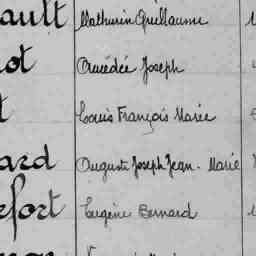 ault Mathurin Guillaume
ot Amédée Joseph
t Louis François Marie
ard Auguste Joseph Jean-Marie
efort Eugène Bernard